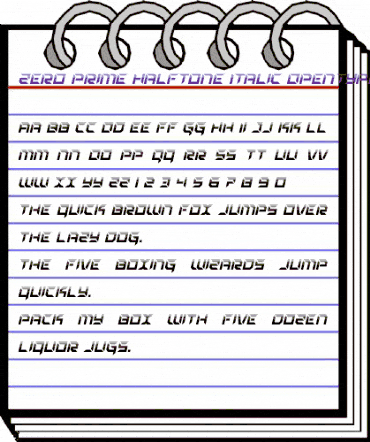 ZERO PRIME HALFTONE ITALIC OPENTYP
AA BB CC DD EE FF GG HH II JJ KK LL
MM NN OO PP QQ RR SS TT UU VV
WW XX YY ZZ 1 2 3 4 5 6 7 8 9 0
THE QUICK BROWN FOX JUMPS OVER
THE LAZY DOG.
THE FIVE BOXING WIZARDS JUMP
QUICKLY.
PACK MY BOX WITH FIVE DOZEN
LIQUOR JUGS.